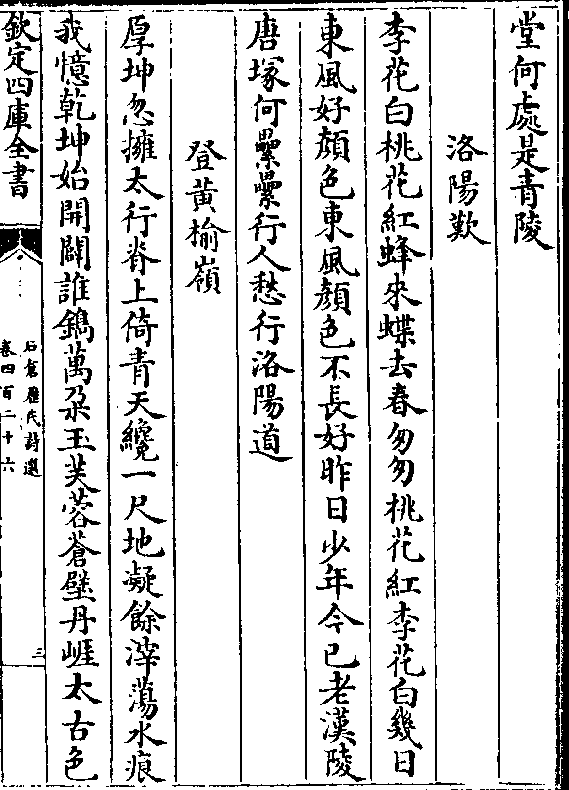 堂何處是青陵
洛陽歎
李花白桃花紅蜂來蝶去春匆匆桃花紅李花白幾日
東風好顔色東風顔色不長好昨日少年今已老漢陵
唐塚何纍纍行人愁行洛陽道
登黄榆嶺
厚坤忽擁太行脊上倚青天纔一尺地凝餘滓蕩水痕
我憶乾坤始開闢誰鐫萬朶玉芙蓉蒼壁丹崕太古色
欽定四庫全書
石倉歴代詩選
卷四百二十六
三